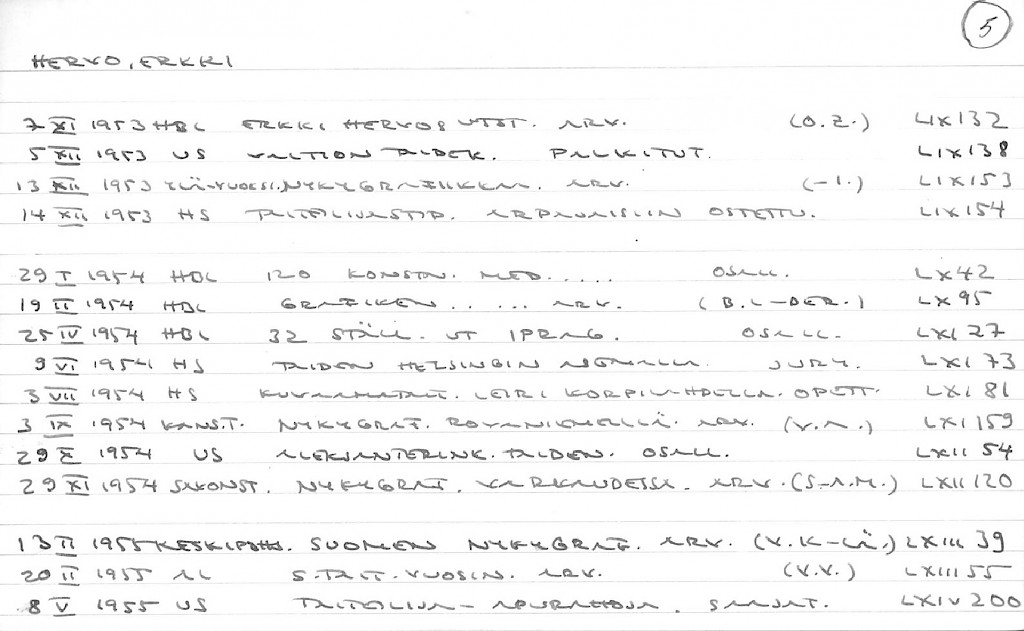 5
HERVO, ERKKI
7 XI 1953 HBL ERKKI HERVOS UTST. ARV. (O.Z.) LIX 132
5 XII 1953 US VALTION TAIDEK. PALKITUT. LIX 138
13 XII 1953 YLÄ-VUOKSI. NYKYGRAFIIKKAA. ARV. (-I.) LIX 153
14 XII 1953 HS TAITEILIJASTIP. ARPAJAISIIN OSTETTU. LIX 154
29 I 1954 HBL 120 KONSTN. MED..... OSALL. LX 42
19 II 1954 HBL GRAFIKEN ...... ARV. (B.L-DER.) LX 95
25 IV 1954 HBL 32 STÄLL. UT I PRAG. OSALL. LXI 27
9 VI 1954 HS TAIDEN HELSINGIN ASEMALLA. JURY. LXI 73
3 VII 1954 HS KUVAAMATAIT. LEIRI KORPILAHDELLA. OPETT. LXI 81
3 IX 1954 KANS.T. NYKYGRAF. ROVANIEMELLÄ. ARV. (V.A.) LXI 159
29 X 1954 US ALEKSANTERINK. TAIDEN. OSALL. LXII 54
29 XI 1954 SKONST. NYKYGRAF. VARKAUDESSA. ARV. (S-A.M.) LXII 120
13 II 1955 KESKIPOHJ. SUOMEN NYKYGRAF. ARV. (V.K-LÄ.) LXIII 39
20 II 1955 AL S.TAIT.VUOSIN. ARV. (V.V.) LXIII 55
8 V 1955 US TAITEILIJA-APURAHOJA. SAAJAT. LXIV 200